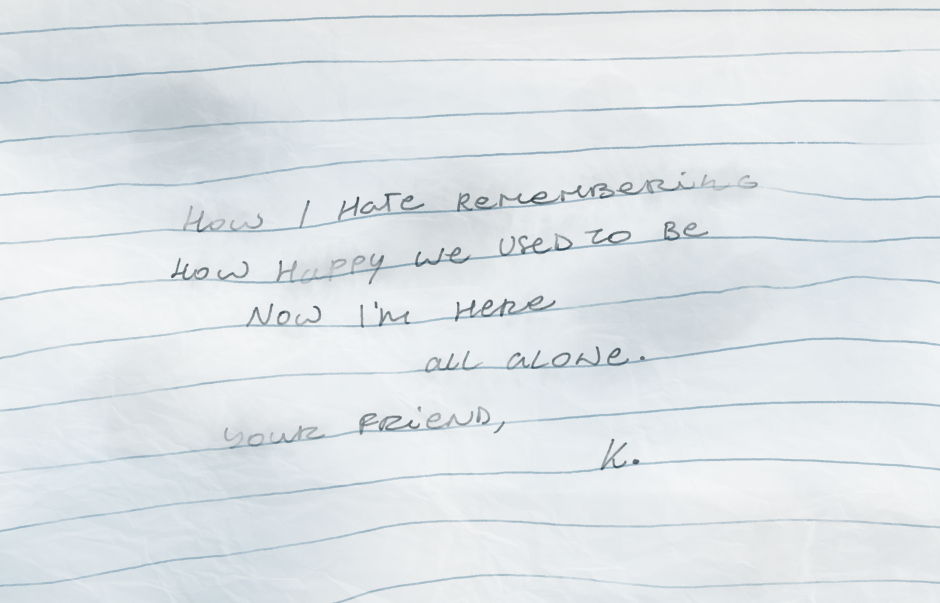 How I Hate Remembering
How Happy we used to Be
Now I'm Here
all alone.
your Friend,
K.